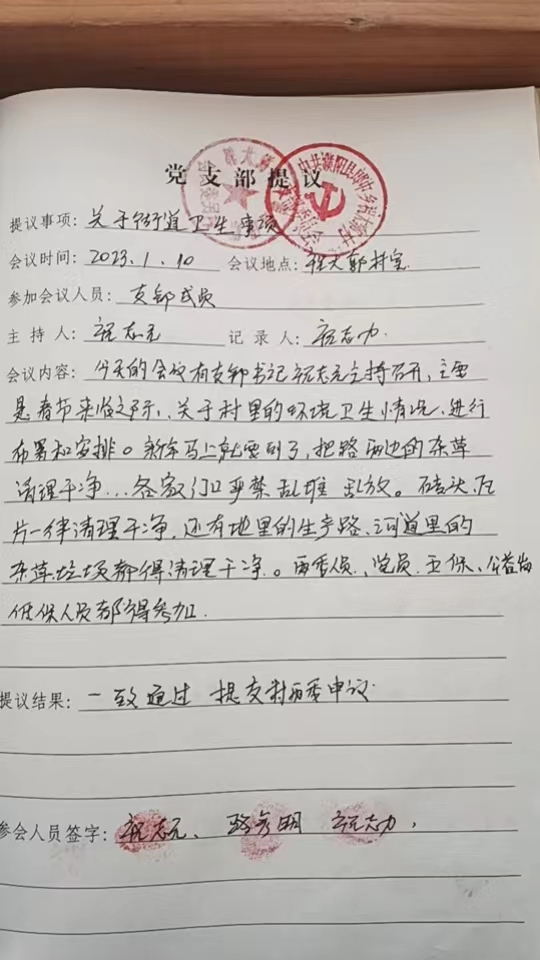 党支部提议
中共濮阳县
提议事项：关于街道卫生事项
会议时间：2023.1.10 会议地点：大郭村室
参加会议人员：支部成员
主持人：志元 记录人：志力
会议内容：今天的会议有支部书记志元主持召开，主要
是春节来临之际、关于村里的环境卫生情况，进行
布署和安排。新年马上就要到了，把路两边的杂草
清理干净…各家门口严禁乱堆乱放。砖头瓦
片一律清理干净，还有地里的生产路、河道里的
杂草垃圾都得清理干净。两委人员、党员、五保、公益岗
低保人员都得参加.
提议结果：一致通过 提交村两委申议
参会人员签字：志元、明 志力，